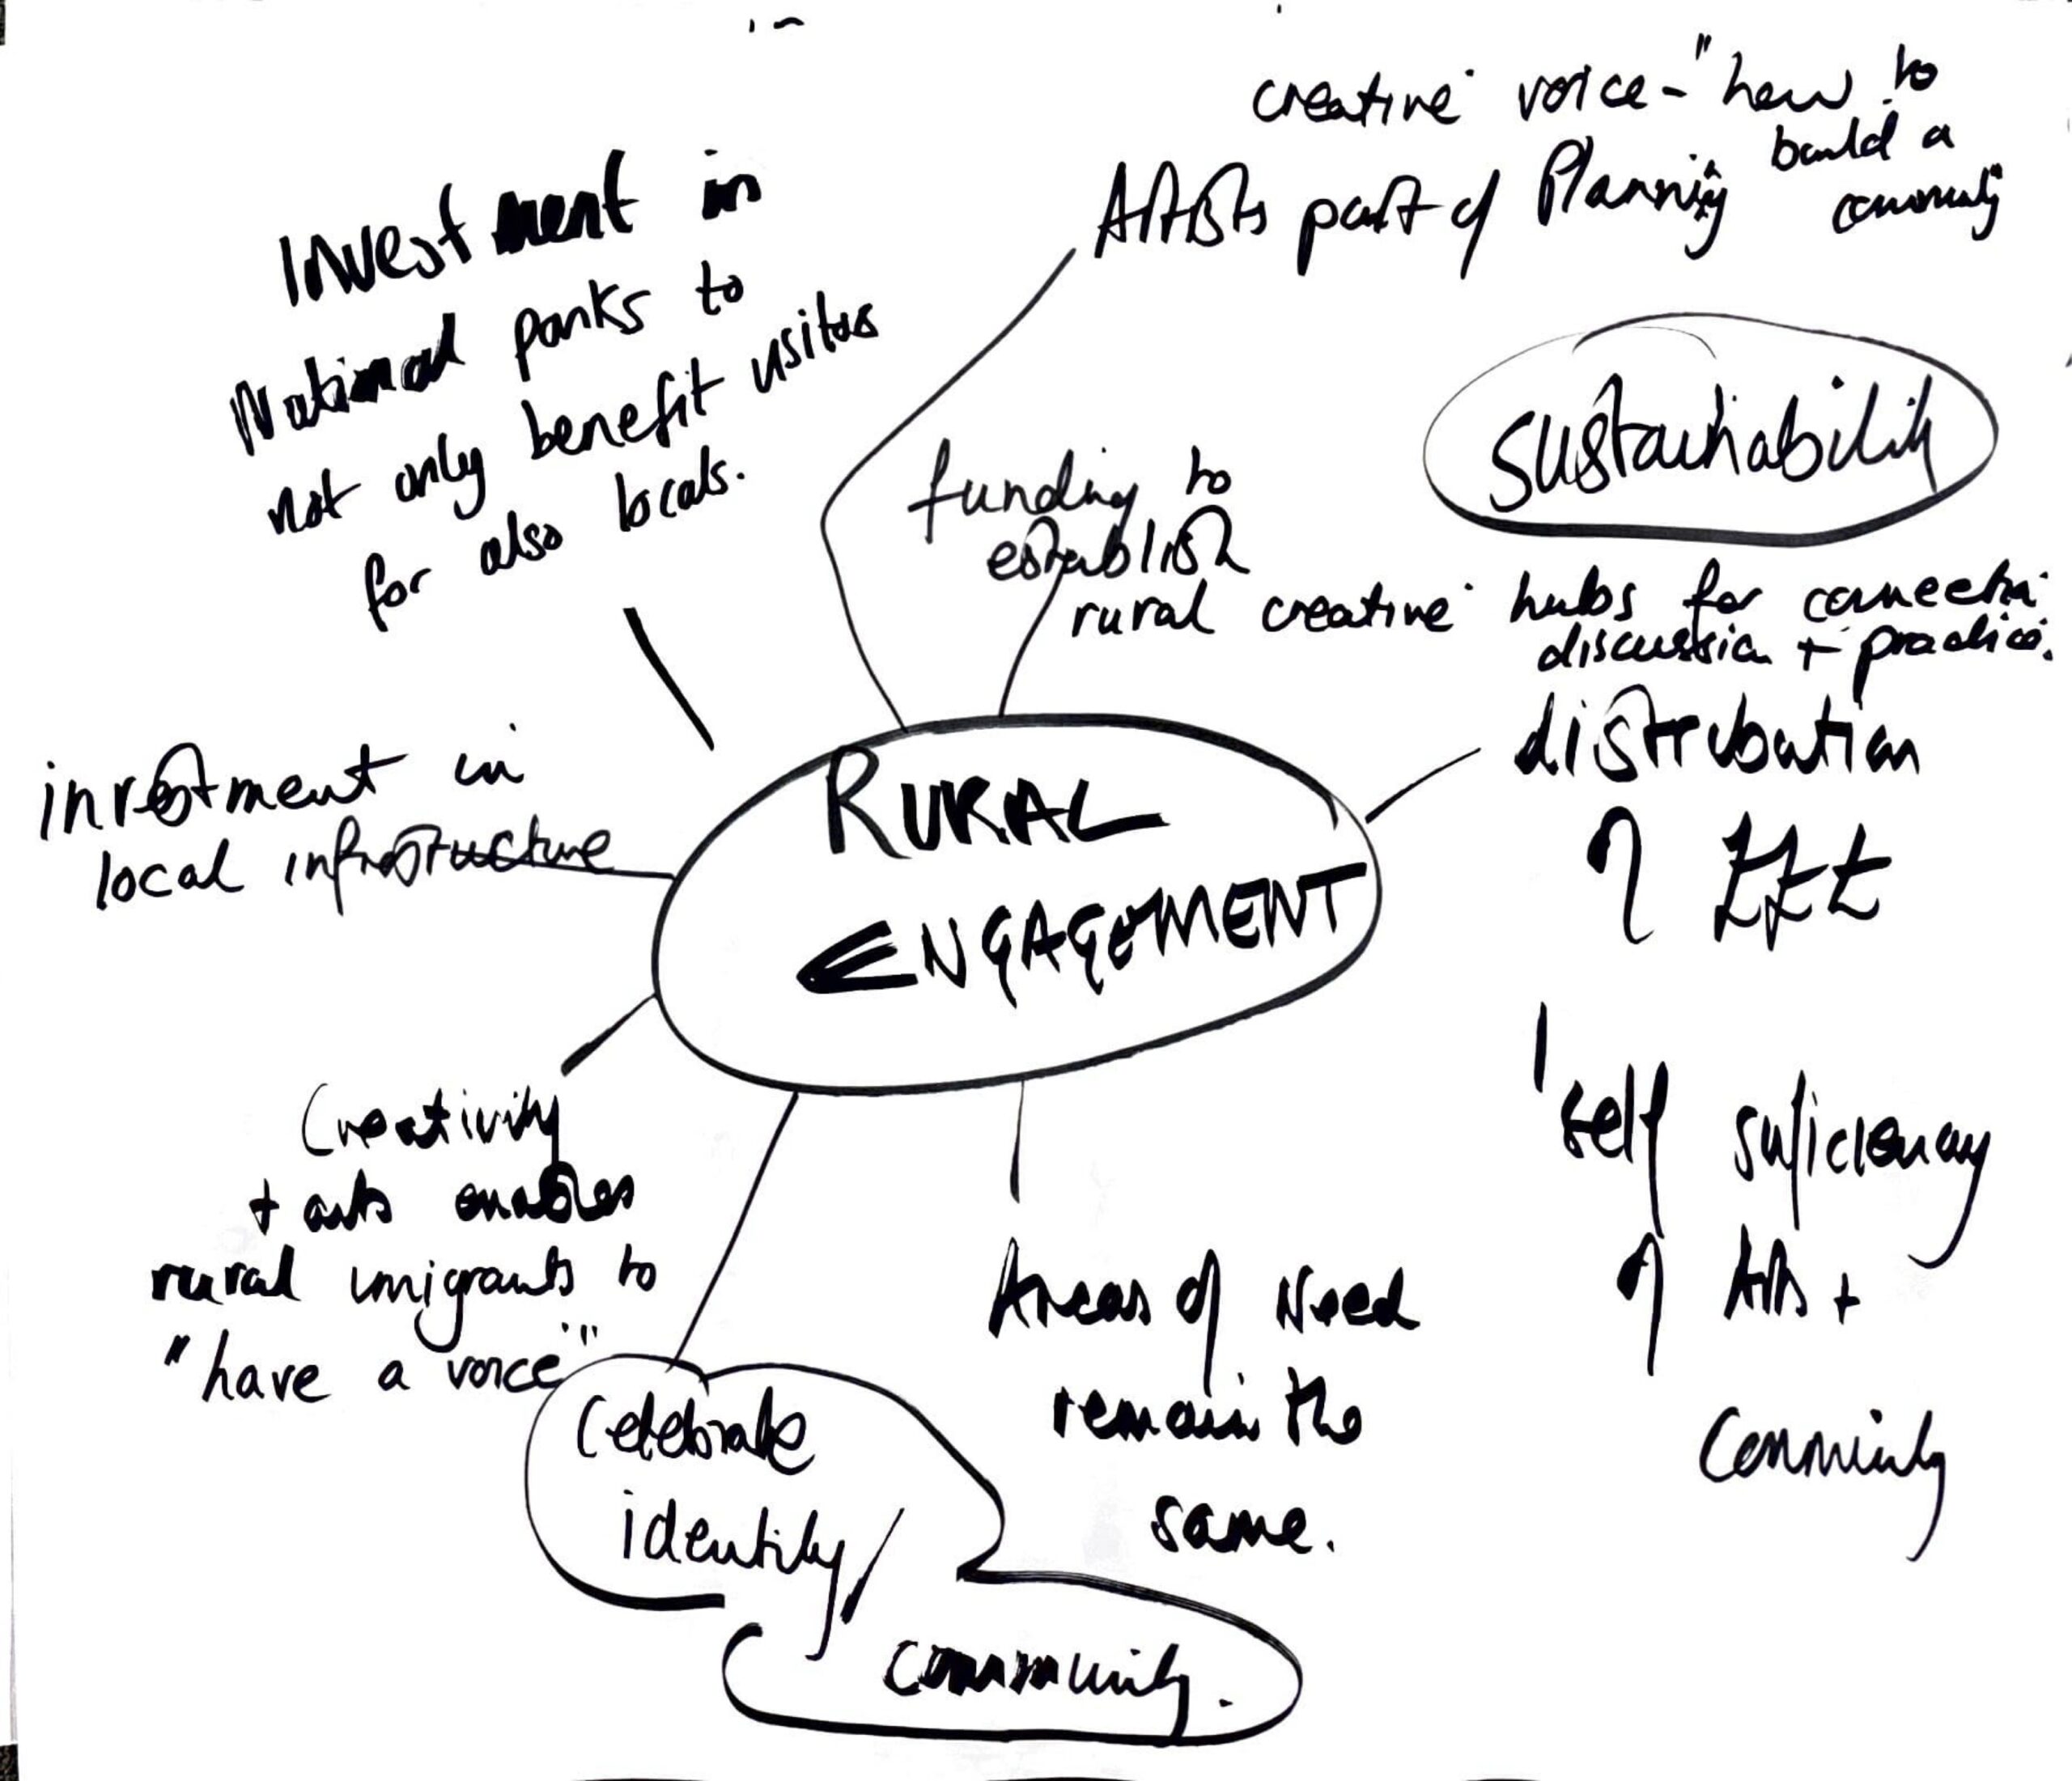 creative voice - "how to
build a
community"
Artists part of Planning
Investment in
National parks to
not only benefit visitors
for also locals.
sustainability
funding to
establish
rural creative hubs for connection
discussion + practice.
distribution
of £££
RURAL
ENGAGEMENT
investment in
local infrastructure
self suficienay
of Arts +
Community
Creativity
+ arts enables
rural imigrants to
"have a voice"
Areas of Need
remain the
same.
Celebrate
identity/
community.